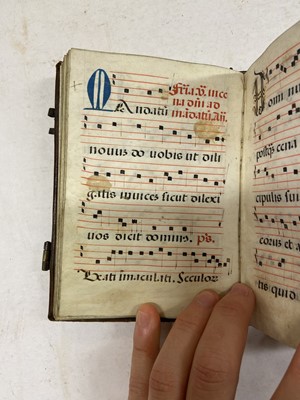 M
Feria v. in ce
na dñi ad
mãdatũ. Añ.
andatũ
nouum do vobis ut dili
gatis inuicem sicut dilexi
uos dicit dominus. ps.
Beati immaculati. Seculor
Dom
postqȝ cena
cipulis sui
tis quid